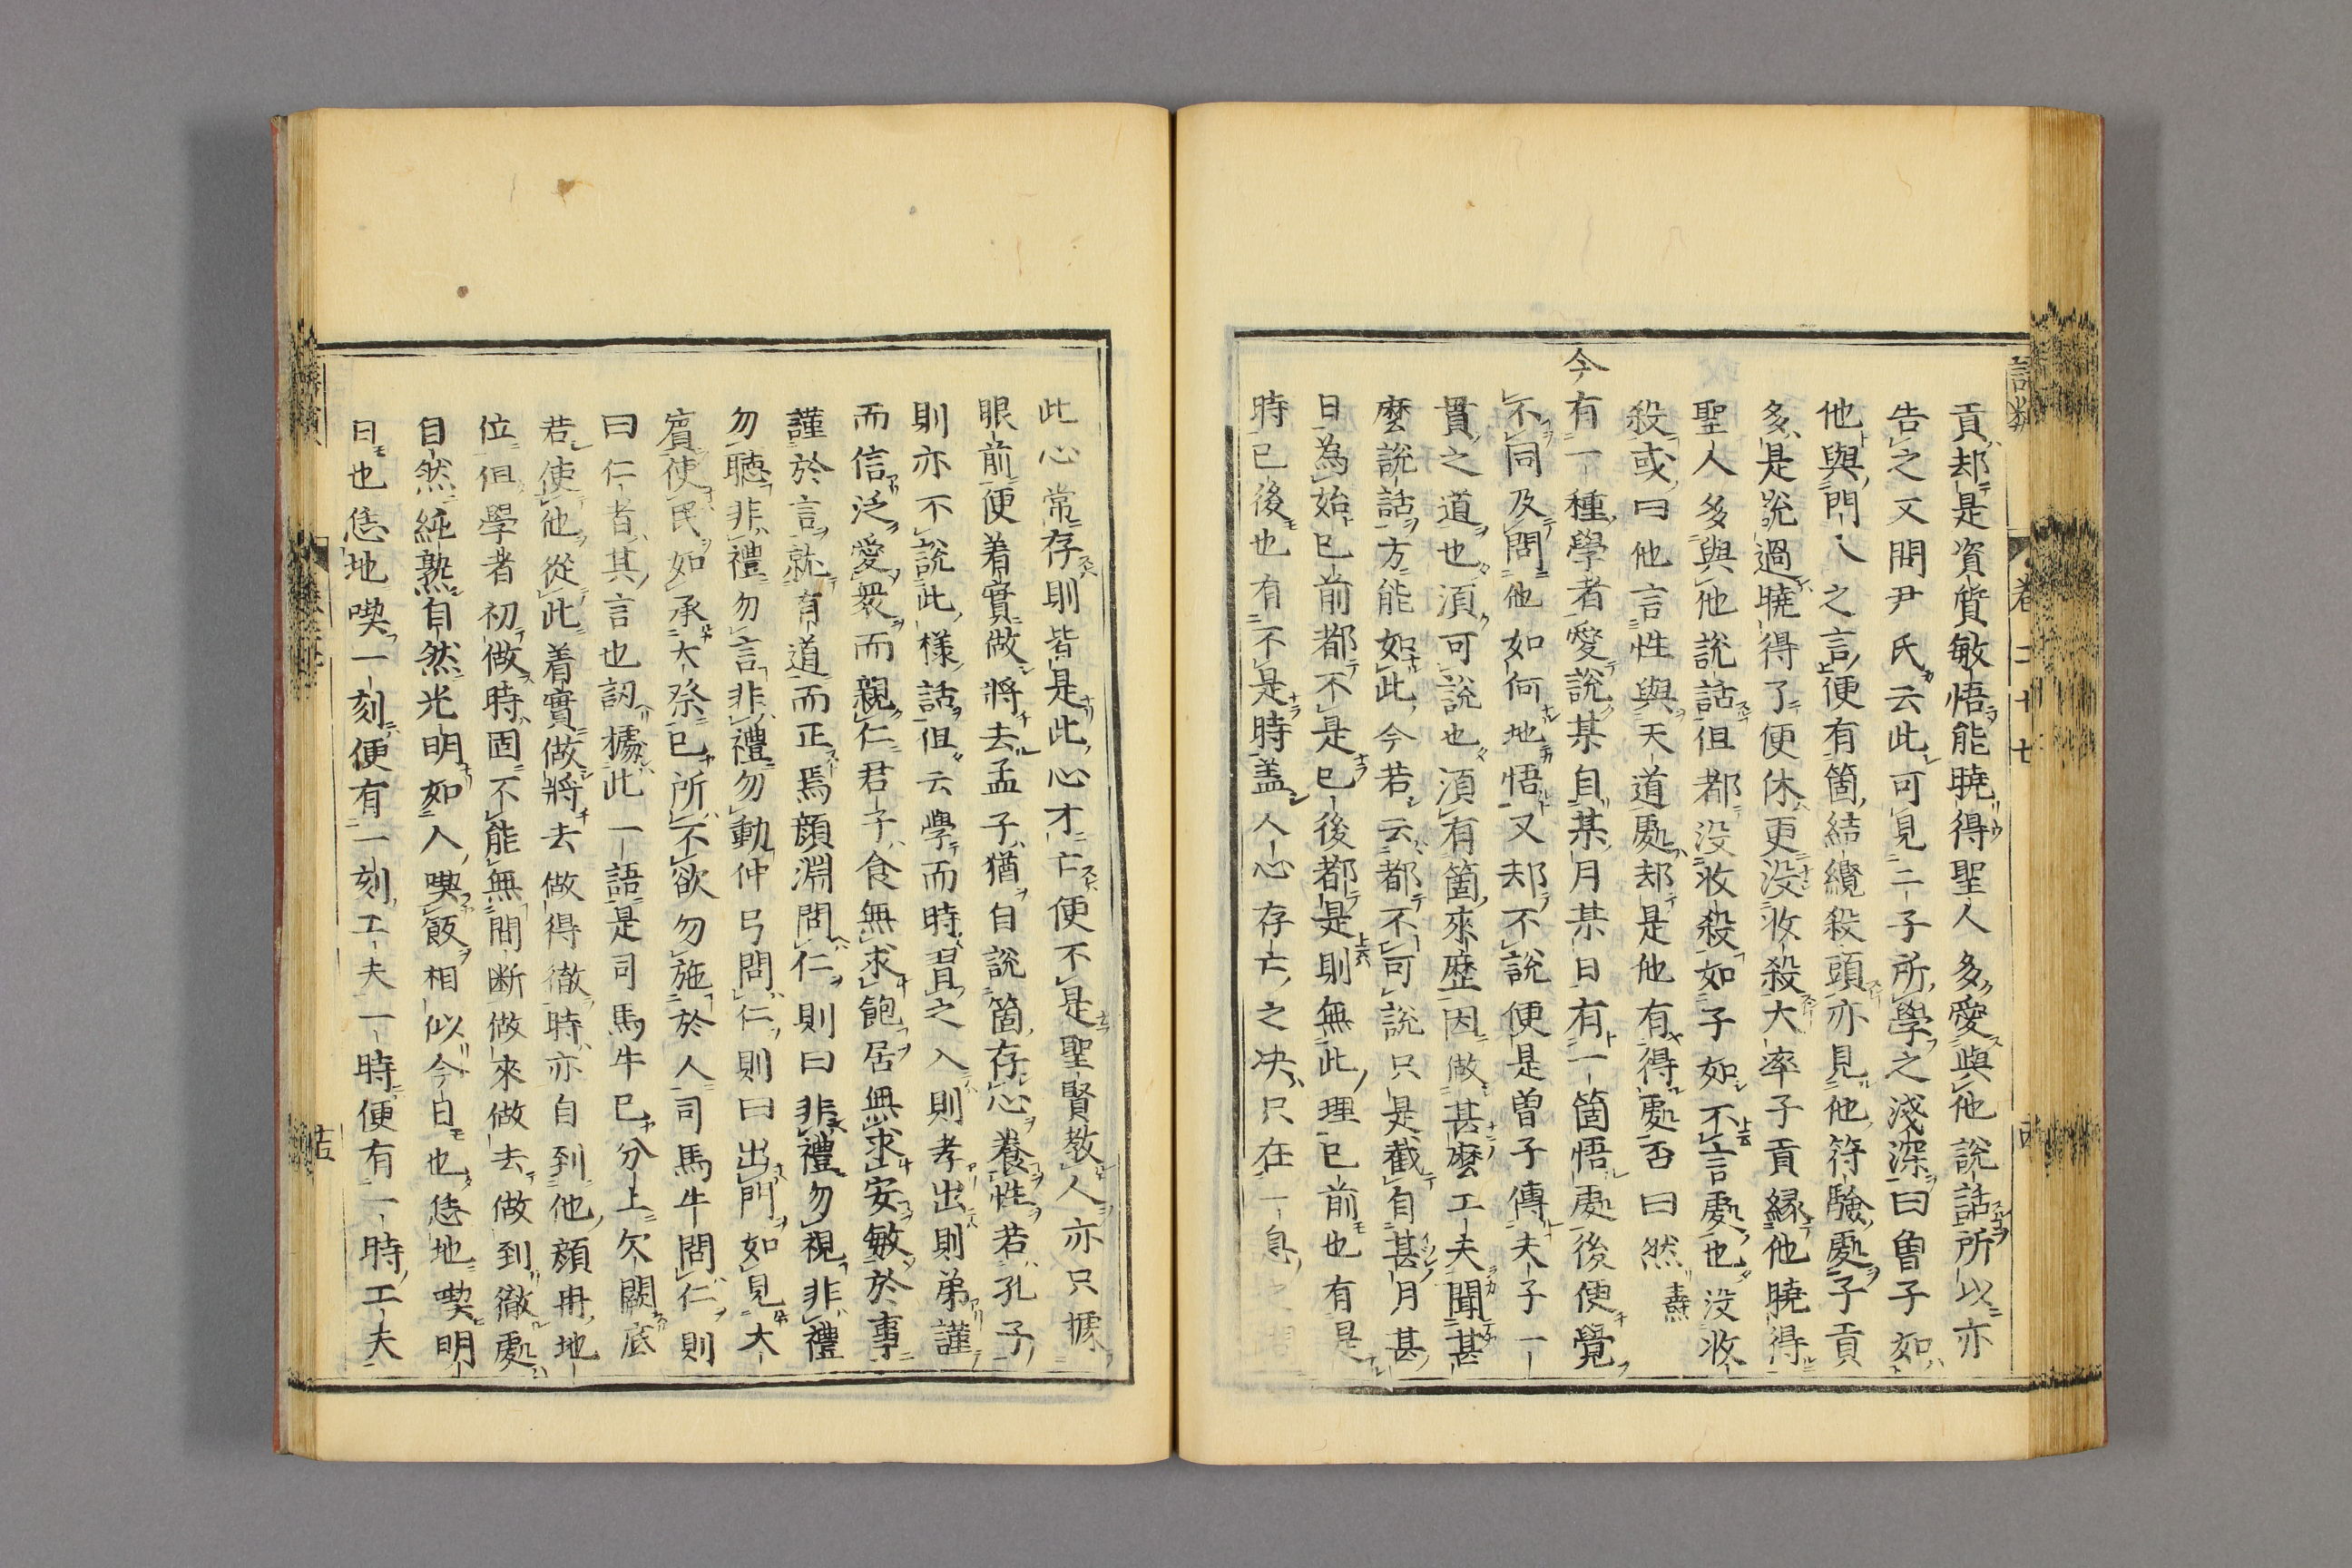 貢却是資質敏悟能曉得聖人多愛與他說話所以亦
告之又問尹氏云此可見二子所學之淺深曰曾子如
他與門人之言便有箇結纜殺頭亦見他符驗處子貢
多是說過曉得了便休更没收殺大率子貢縁他曉得
聖人多與他說話但都没收殺如子如不言處也没收
殺或曰他言性與天道處却是他有得處否曰然 燾
今有一種學者愛說某自某月某日有一箇悟處後便覺
不同及問他如何地悟又却不說便是曾子傳夫子一
貫之道也湏可說也湏有箇來歷因做甚麼工夫聞甚
麼說話方能如此今若云都不可說只是截自甚月甚
日為始已前都不是已後都是則無此理已前也有是
時已後也有不是時盖人心存亡之决只在一息之間
此心常存則皆是此心才亡便不是聖賢教人亦只據
眼前便着實做將去孟子猶自說箇存心養性若孔子
則亦不說此樣話但云學而時習之入則孝出則弟謹
而信泛愛衆而親仁君子食無求飽居無求安敏於事
謹於言就有道而正焉顔淵問仁則曰非禮勿視非禮
勿聽非禮勿言非禮勿動仲弓問仁則曰出門如見大
賓使民如承大祭已所不欲勿施於人司馬牛問仁則
曰仁者其言也訒據此一語是司馬牛已分上欠闕底
若使他從此着實做將去做得徹時亦自到他顔冉地
位但學者初做時固不能無間断做來做去做到徹處
自然純熟自然光明如人喫飯相似今日也恁地喫明
日也恁地喫一刻便有一刻工夫一時便有一時工夫